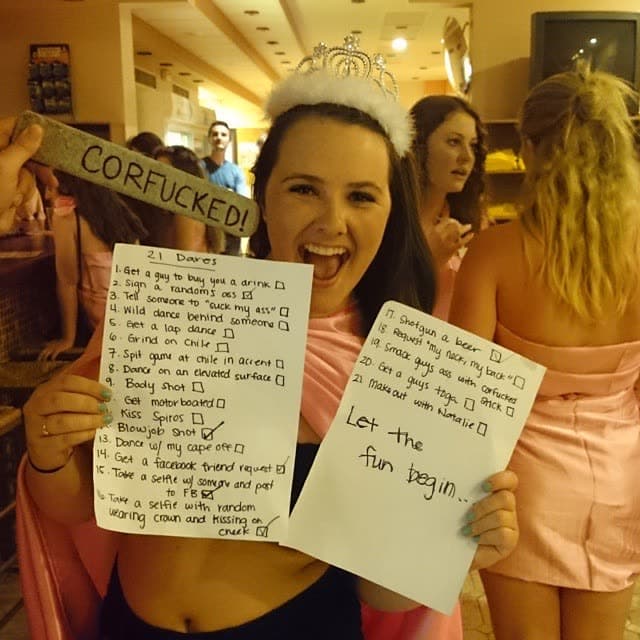 CORFUCKED!
21 Dares
1. Get a guy to buy you a drink
2. Sign a randoms ass
3. Tell someone to "suck my ass"
4. Wild dance behind someone
5. Get a lap dance
6. Grind on Chile
7. Spit game at chile in accent
8. Dance on an elevated surface
9. Body shot
Get motorboated
Kiss Spiros
Blowjob shot
13. Dance w/ my cape off
14. Get a facebook friend request
15. Take a selfie w/ someone and post
to FB
Take a selfie with random
wearing crown and kissing on
cheek
17. Shotgun a beer
18. Request "my neck, my back"
19. Smack guys ass with corfucked
stick
20. Get a guys toga
21. Makeout with Natalie
Let the
fun begin...